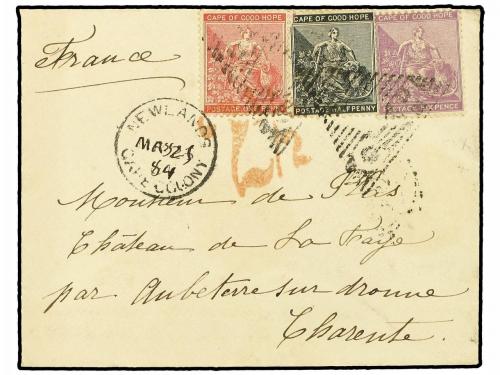 France
CAPE OF GOOD HOPE
POSTAGE
CAPE OF GOOD HOPE
POSTAGE HALFPENNY
CAPE OF GOOD HOPE
POSTAGE SIX PENCE
NEWLANDS
84
CAPE COLONY
Monsieur de
Château de La Faye
par Aubeterre sur dronne
Charente.